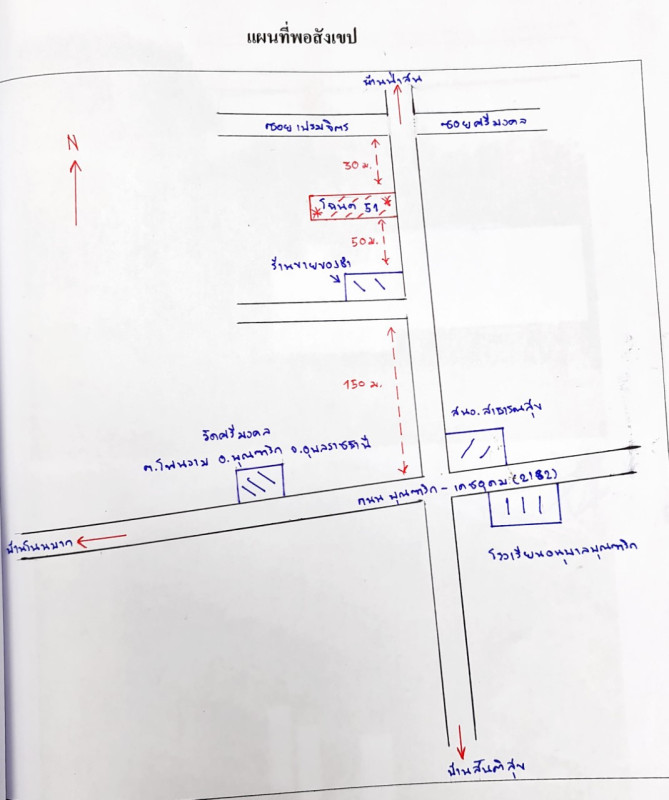 แผนที่พอสังเขป
บ้านป่าสน
ซอยเปรมจิตร
ซอยศรีมงคล
N
30 ม.
โฉนด 51
50 ม.
ร้านขายของชำ
150 ม.
สนง.สาธารณสุข
วัดศรีมงคล
ต.โพนงาม อ.บุณฑริก จ.อุบลราชธานี
ถนน บุณฑริก - เดชอุดม (2182)
บ้านโนนหมาก
โรงเรียนอนุบาลบุณฑริก
บ้านสันติสุข